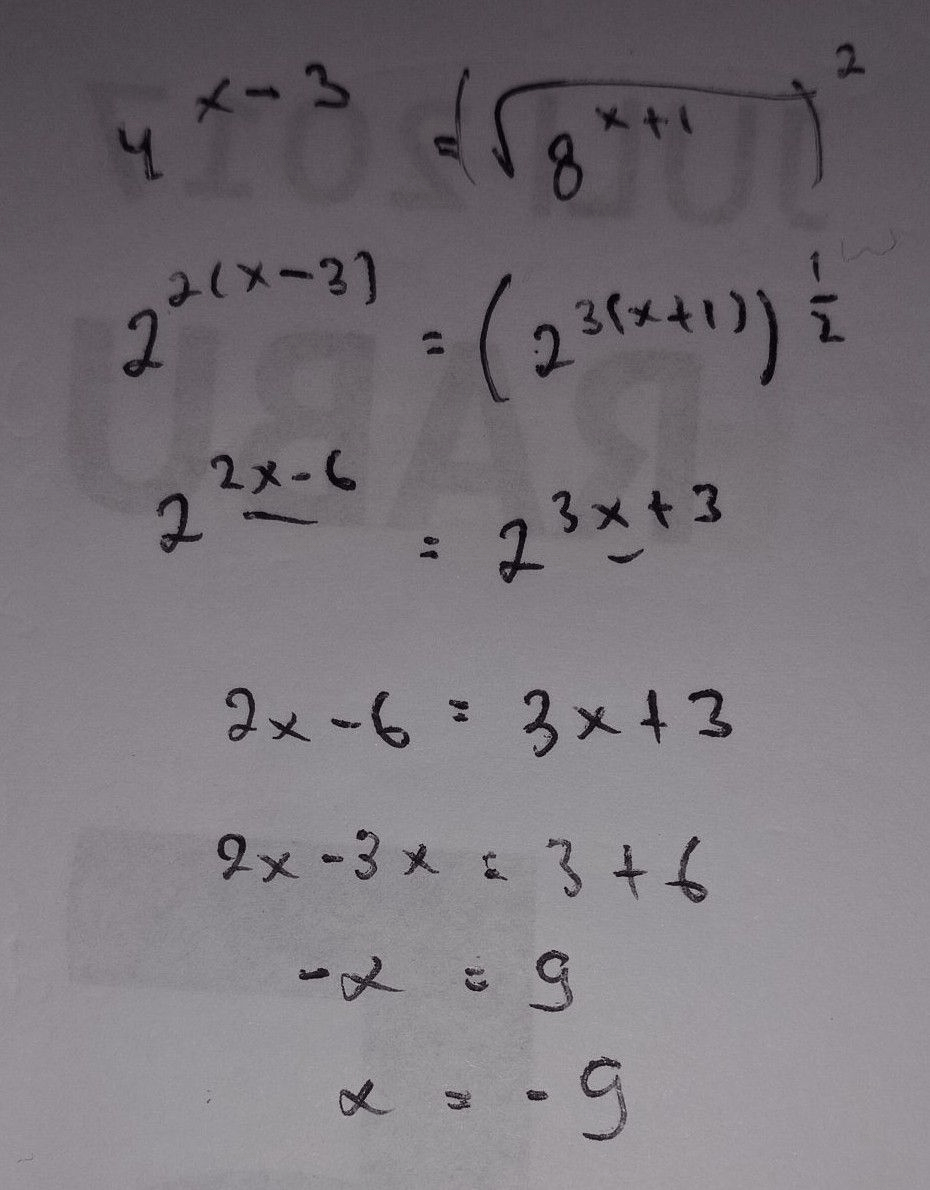 4^{x-3} = (√(8^{x+1}))^2
2^{2(x-3)} = (2^{3(x+1)})^{1/2}
2^{2x-6} = 2^{3x+3}
2x-6 = 3x+3
2x-3x = 3+6
-x = 9
x = -9